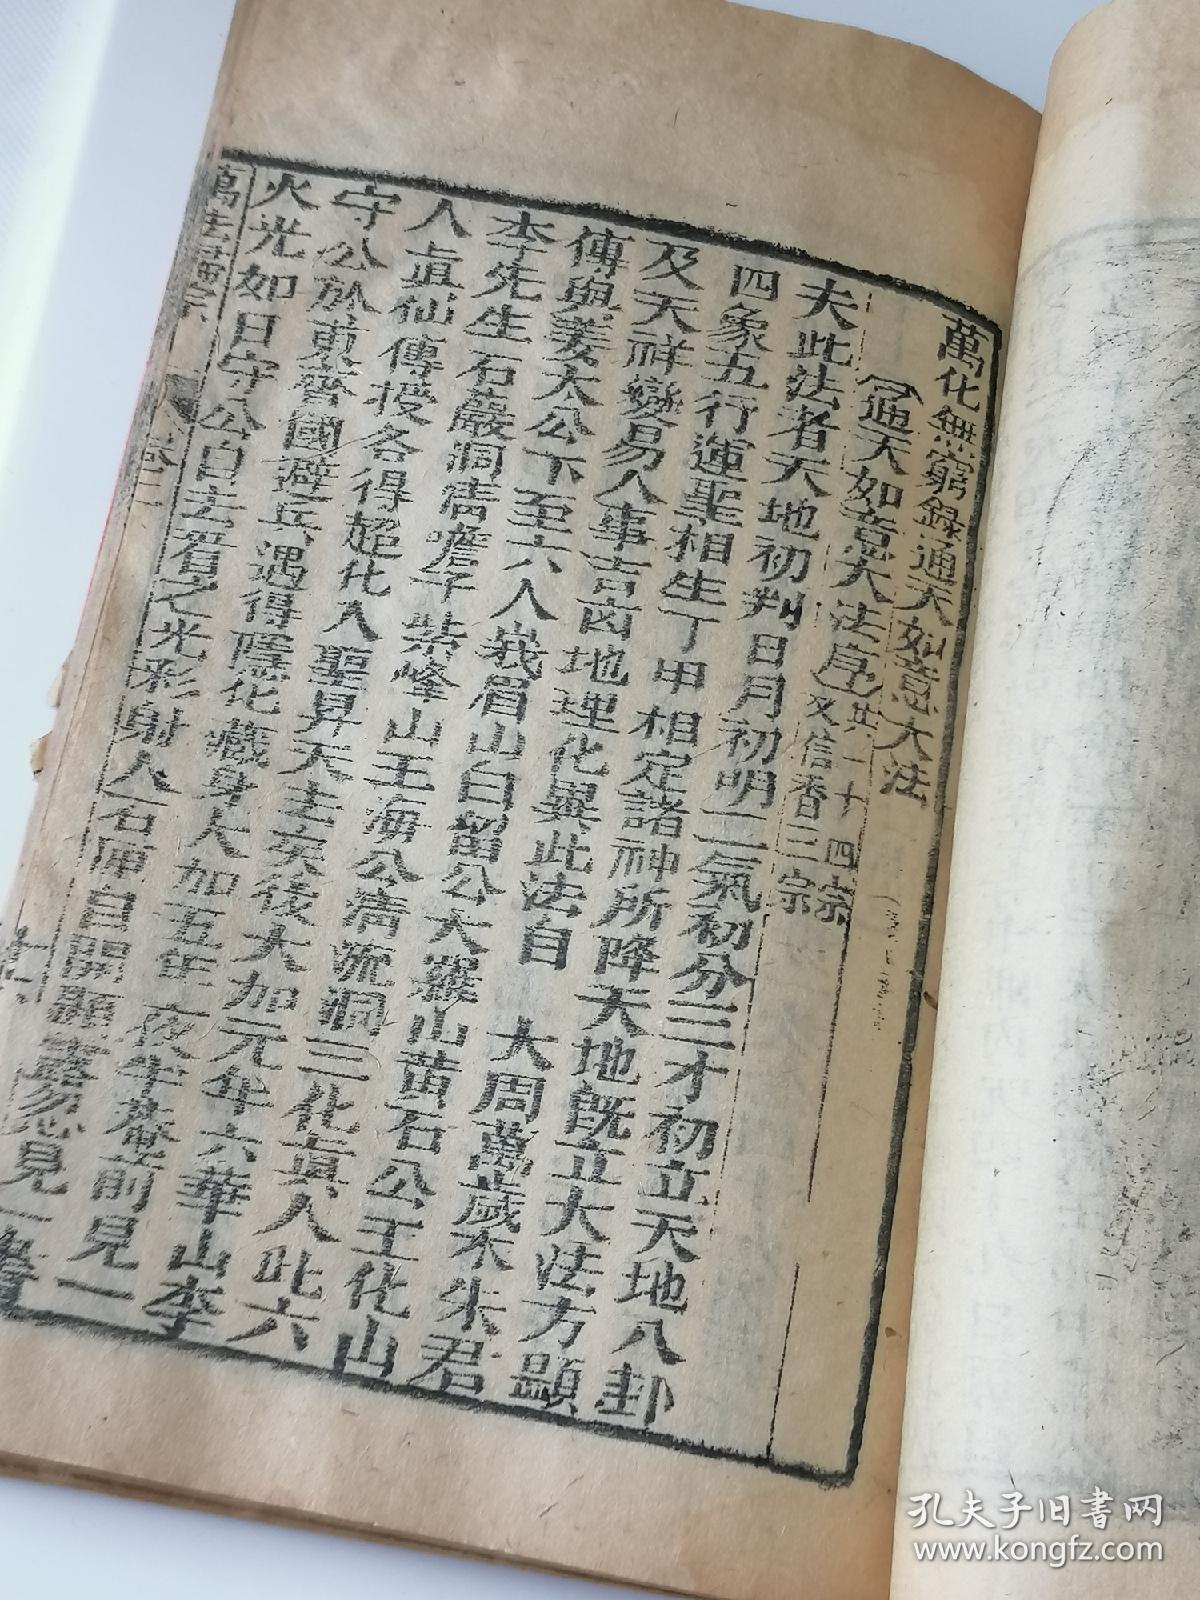 萬化無窮錄通天如意大法
通天如意大法序共二十四宗
又信香三宗
夫此法者天地初判日月初明二氣初分三才初立天地八卦
四象五行運聖相生丁甲相定諸神所降天地既立大法方顯
及天祥變易人事吉凶地理化異此法自 大周萬歲不朱君
傳與姜太公下至六人峩眉山白留公大羅山黄石公王化山
李先生石巖洞清澹子紫峰山王海公清流洞三化眞人此六
人眞仙傳授各得超化入聖昇天去矣後大加元年六華山李
守公於東晉國避兵遇得隱化藏身大加五年夜半巷前見一
火光如日守公自去看之光彩射人石匣自開顯露忽見一
萬法歸宗
卷二
孔夫子旧书网
www.kongfz.com